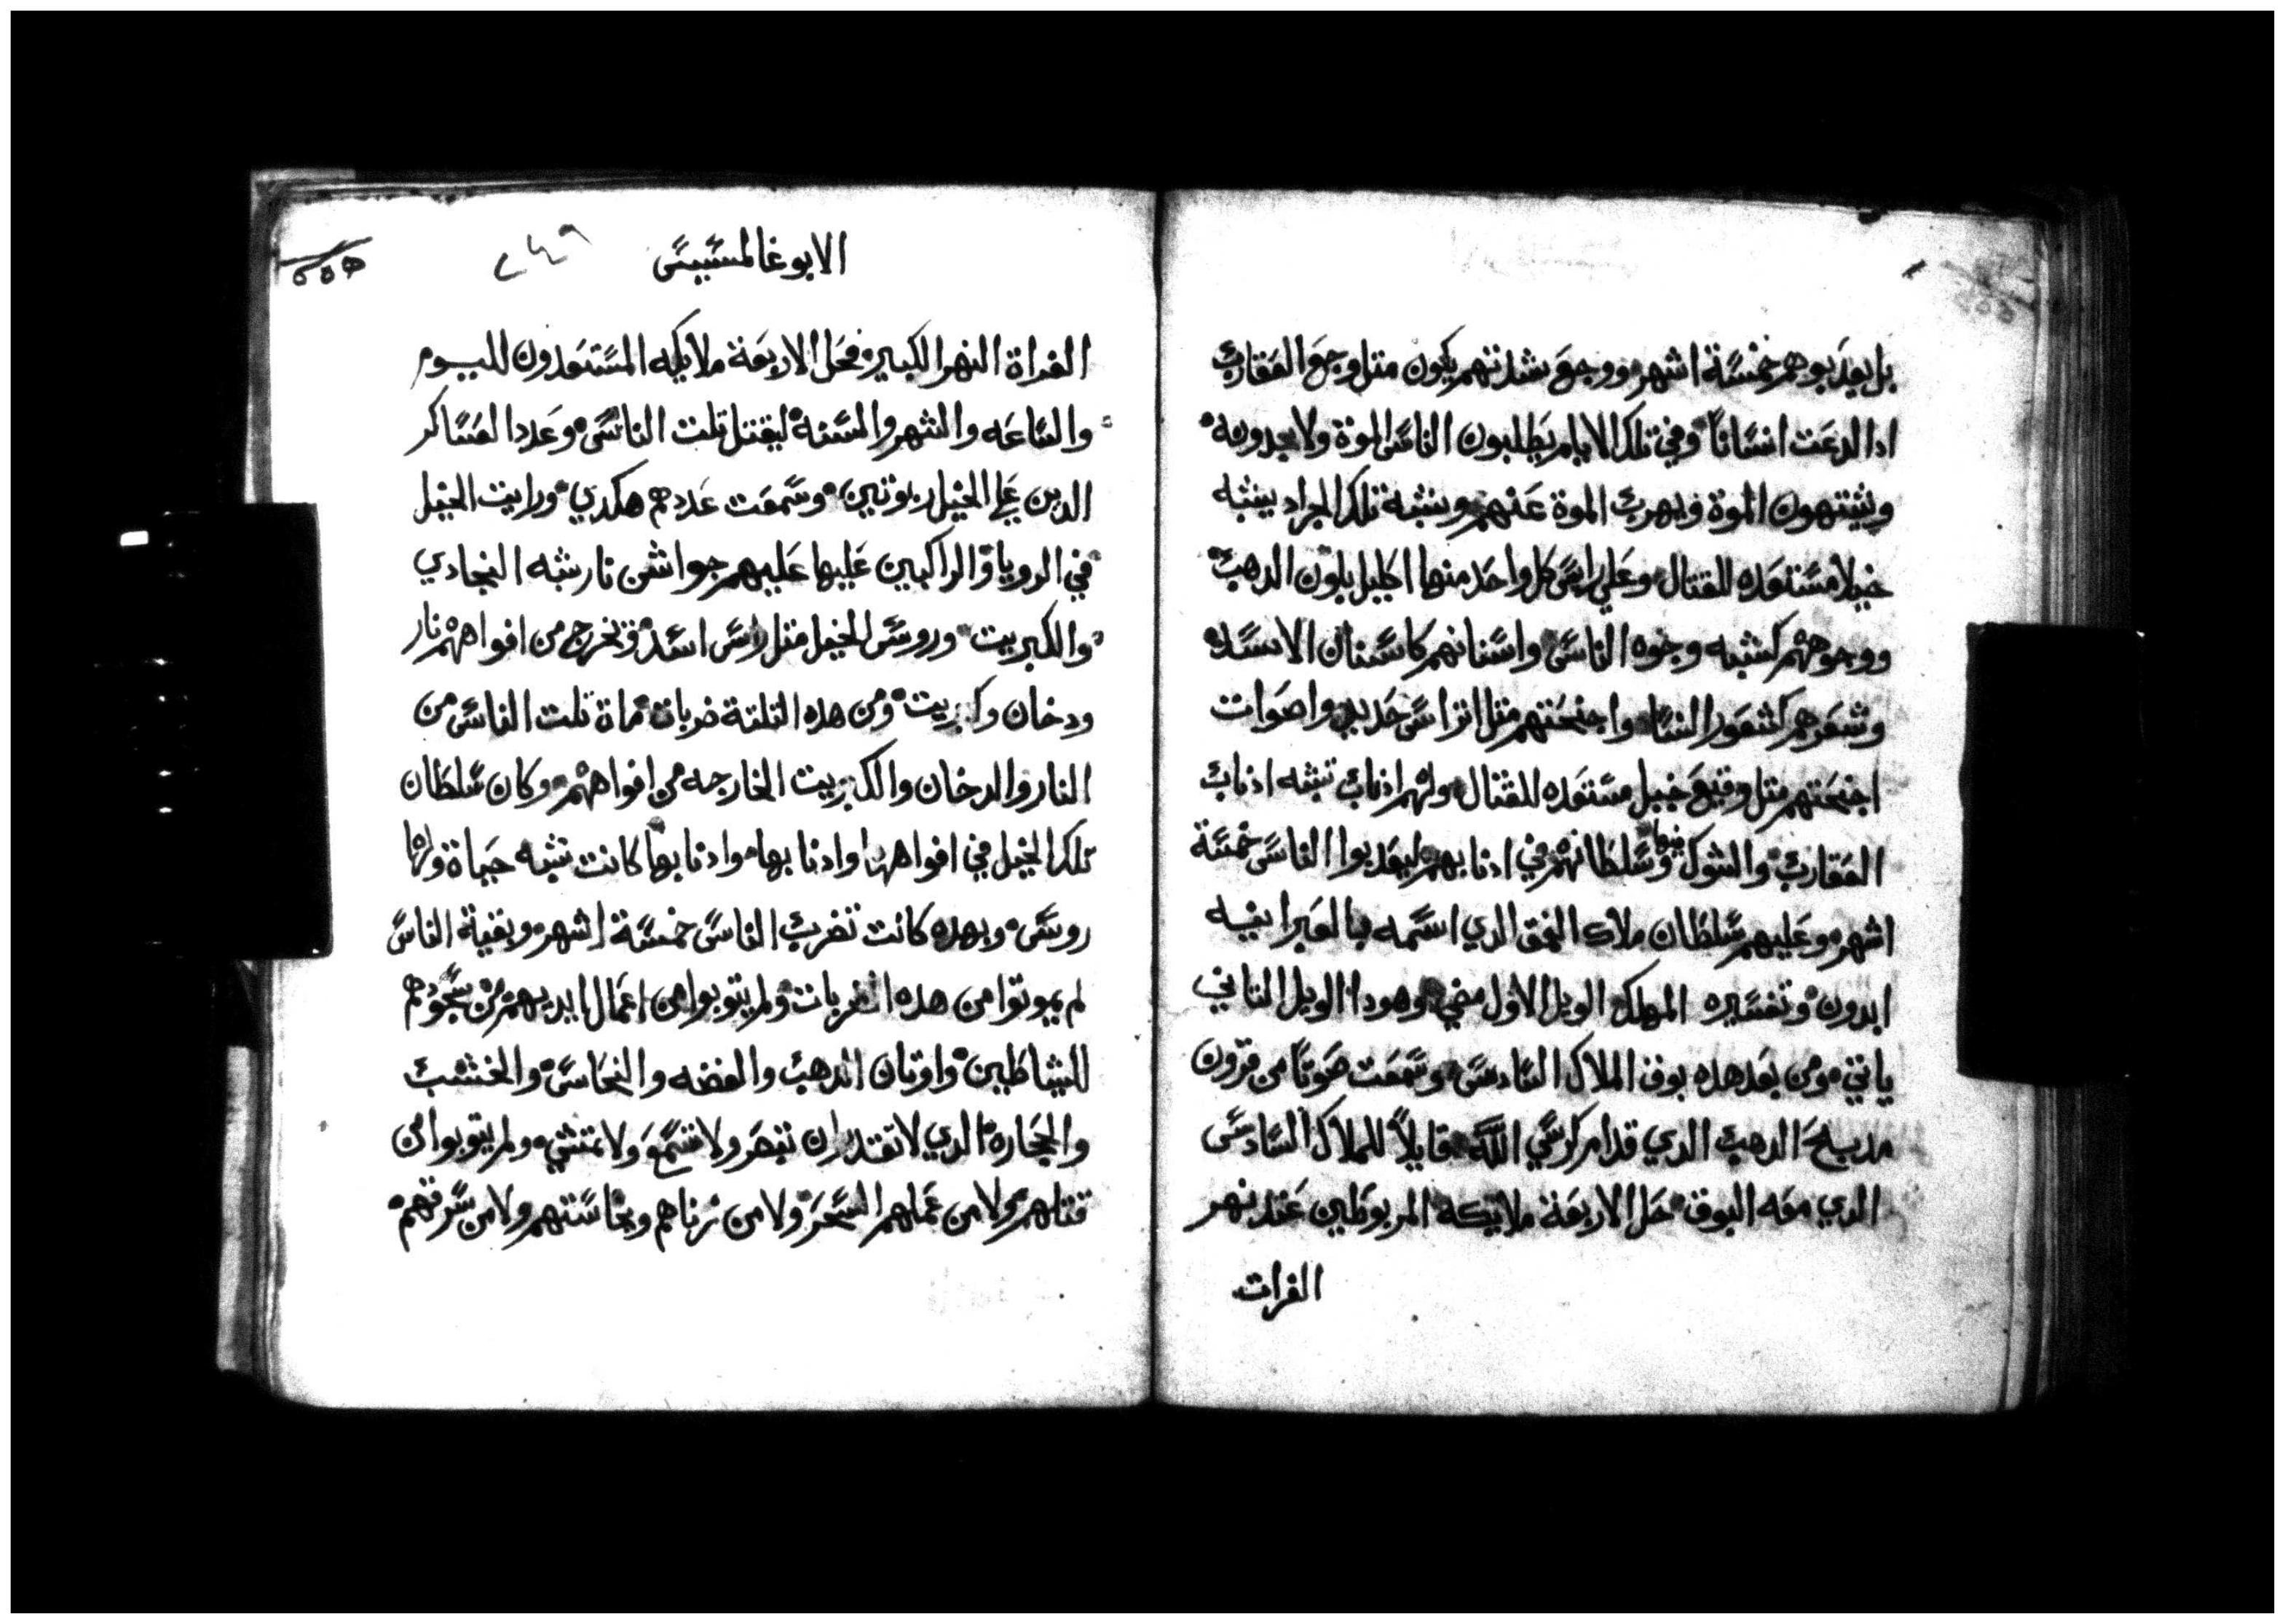 بل يعدبوهم خمسة اشهر ووجع شدتهم يكون متل وجع العقارب
ادا لدعت انسانا وفي تلك الايام يطلبون الناس الموة ولا يجدونه
ويشتهون الموة ويهرب الموة عنهم وشبة تلك الجراد يشبه
خيلا مستعده للقتال وعلي راس كل واحد منها اكليل بلون الدهب
ووجوههم كشبه وجوه الناس واسنانهم كاسنان الاسده
وشعرهم كشعور النسا واجنحتهم متل اتراس حديد واصوات
اجنحتهم متل وقيع خيل مستعده للقتال ولهم ادناب تشبه ادناب
العقارب والشوك فيها وسلطانهم في ادنابهم ليعدبوا الناس خمسة
اشهر وعليهم سلطان ملاك العمق الدي اسمه بالعبرانيه
ابدون وتفسيره المهلك الويل الاول مضي وهودا الويل التاني
ياتي ومن بعد هده بوق الملاك السادس وسمعت صوتا من قرون
مدبح الدهب الدي قدام كرسي الله قايلا للملاك السادس
الدي معه البوق حل الاربعة ملايكه المربوطين عند نهر
الفرات
الابوغالمسيس
٢٤٩
الفراة النهر الكبير فحل الاربعة ملايكه المستعدون لليوم
والساعه والشهر والسنة ليقتل تلت الناس وعدد العساكر
الدين علي الخيل ربوتين وسمعت عددهم هكدي ورايت الخيل
في الرويا والراكبين عليها عليهم جواشن نار شبه النجادي
والكبريت وروس الخيل متل راس اسد وتخرج من افواههم نار
ودخان وكبريت ومن هده التلتة ضربات ماة تلت الناس من
النار والدخان والكبريت الخارجه من افواههم وكان سلطان
تلك الخيل في افواهها وادنابها وادنابها كانت تشبه حياة ولها
روس وبهده كانت تضرب الناس خمسة اشهر وبقية الناس
لم يموتوا من هده الضربات ولم يتوبوا من اعمال ايديهم من سجودهم
للشياطين واوتان الدهب والفضه والنحاس والخشب
والحجاره الدي لا تقتدر ان تبصر ولا تسمع ولا تمشي ولم يتوبوا من
قتلهم ولا من عملهم السحر ولا من زناهم ونجاستهم ولا من سرقتهم